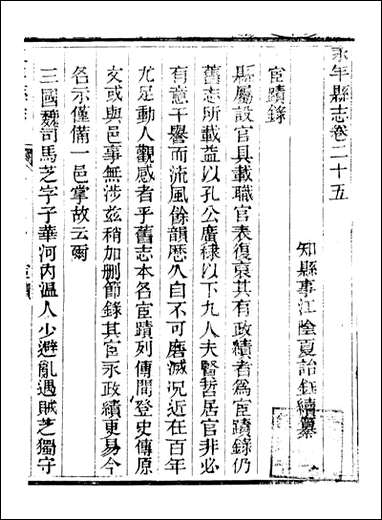 永年縣志卷二十五
知縣事江陰夏詒鈺續纂
宦蹟錄
縣屬設官具載職官表復裒其有政績者為宦蹟錄仍
舊志所載益以孔公廣棣以下九人夫賢哲居官非必
有意干譽而流風餘韻歷久自不可磨滅況近在百年
尤足動人觀感者乎舊志本各宦蹟列傳間登史傳原
文或與邑事無涉茲稍加刪節錄其宦永政績更易今
名示僅備一邑掌故云爾
三國魏司馬芝字子華河內溫人少避亂遇賊芝獨守